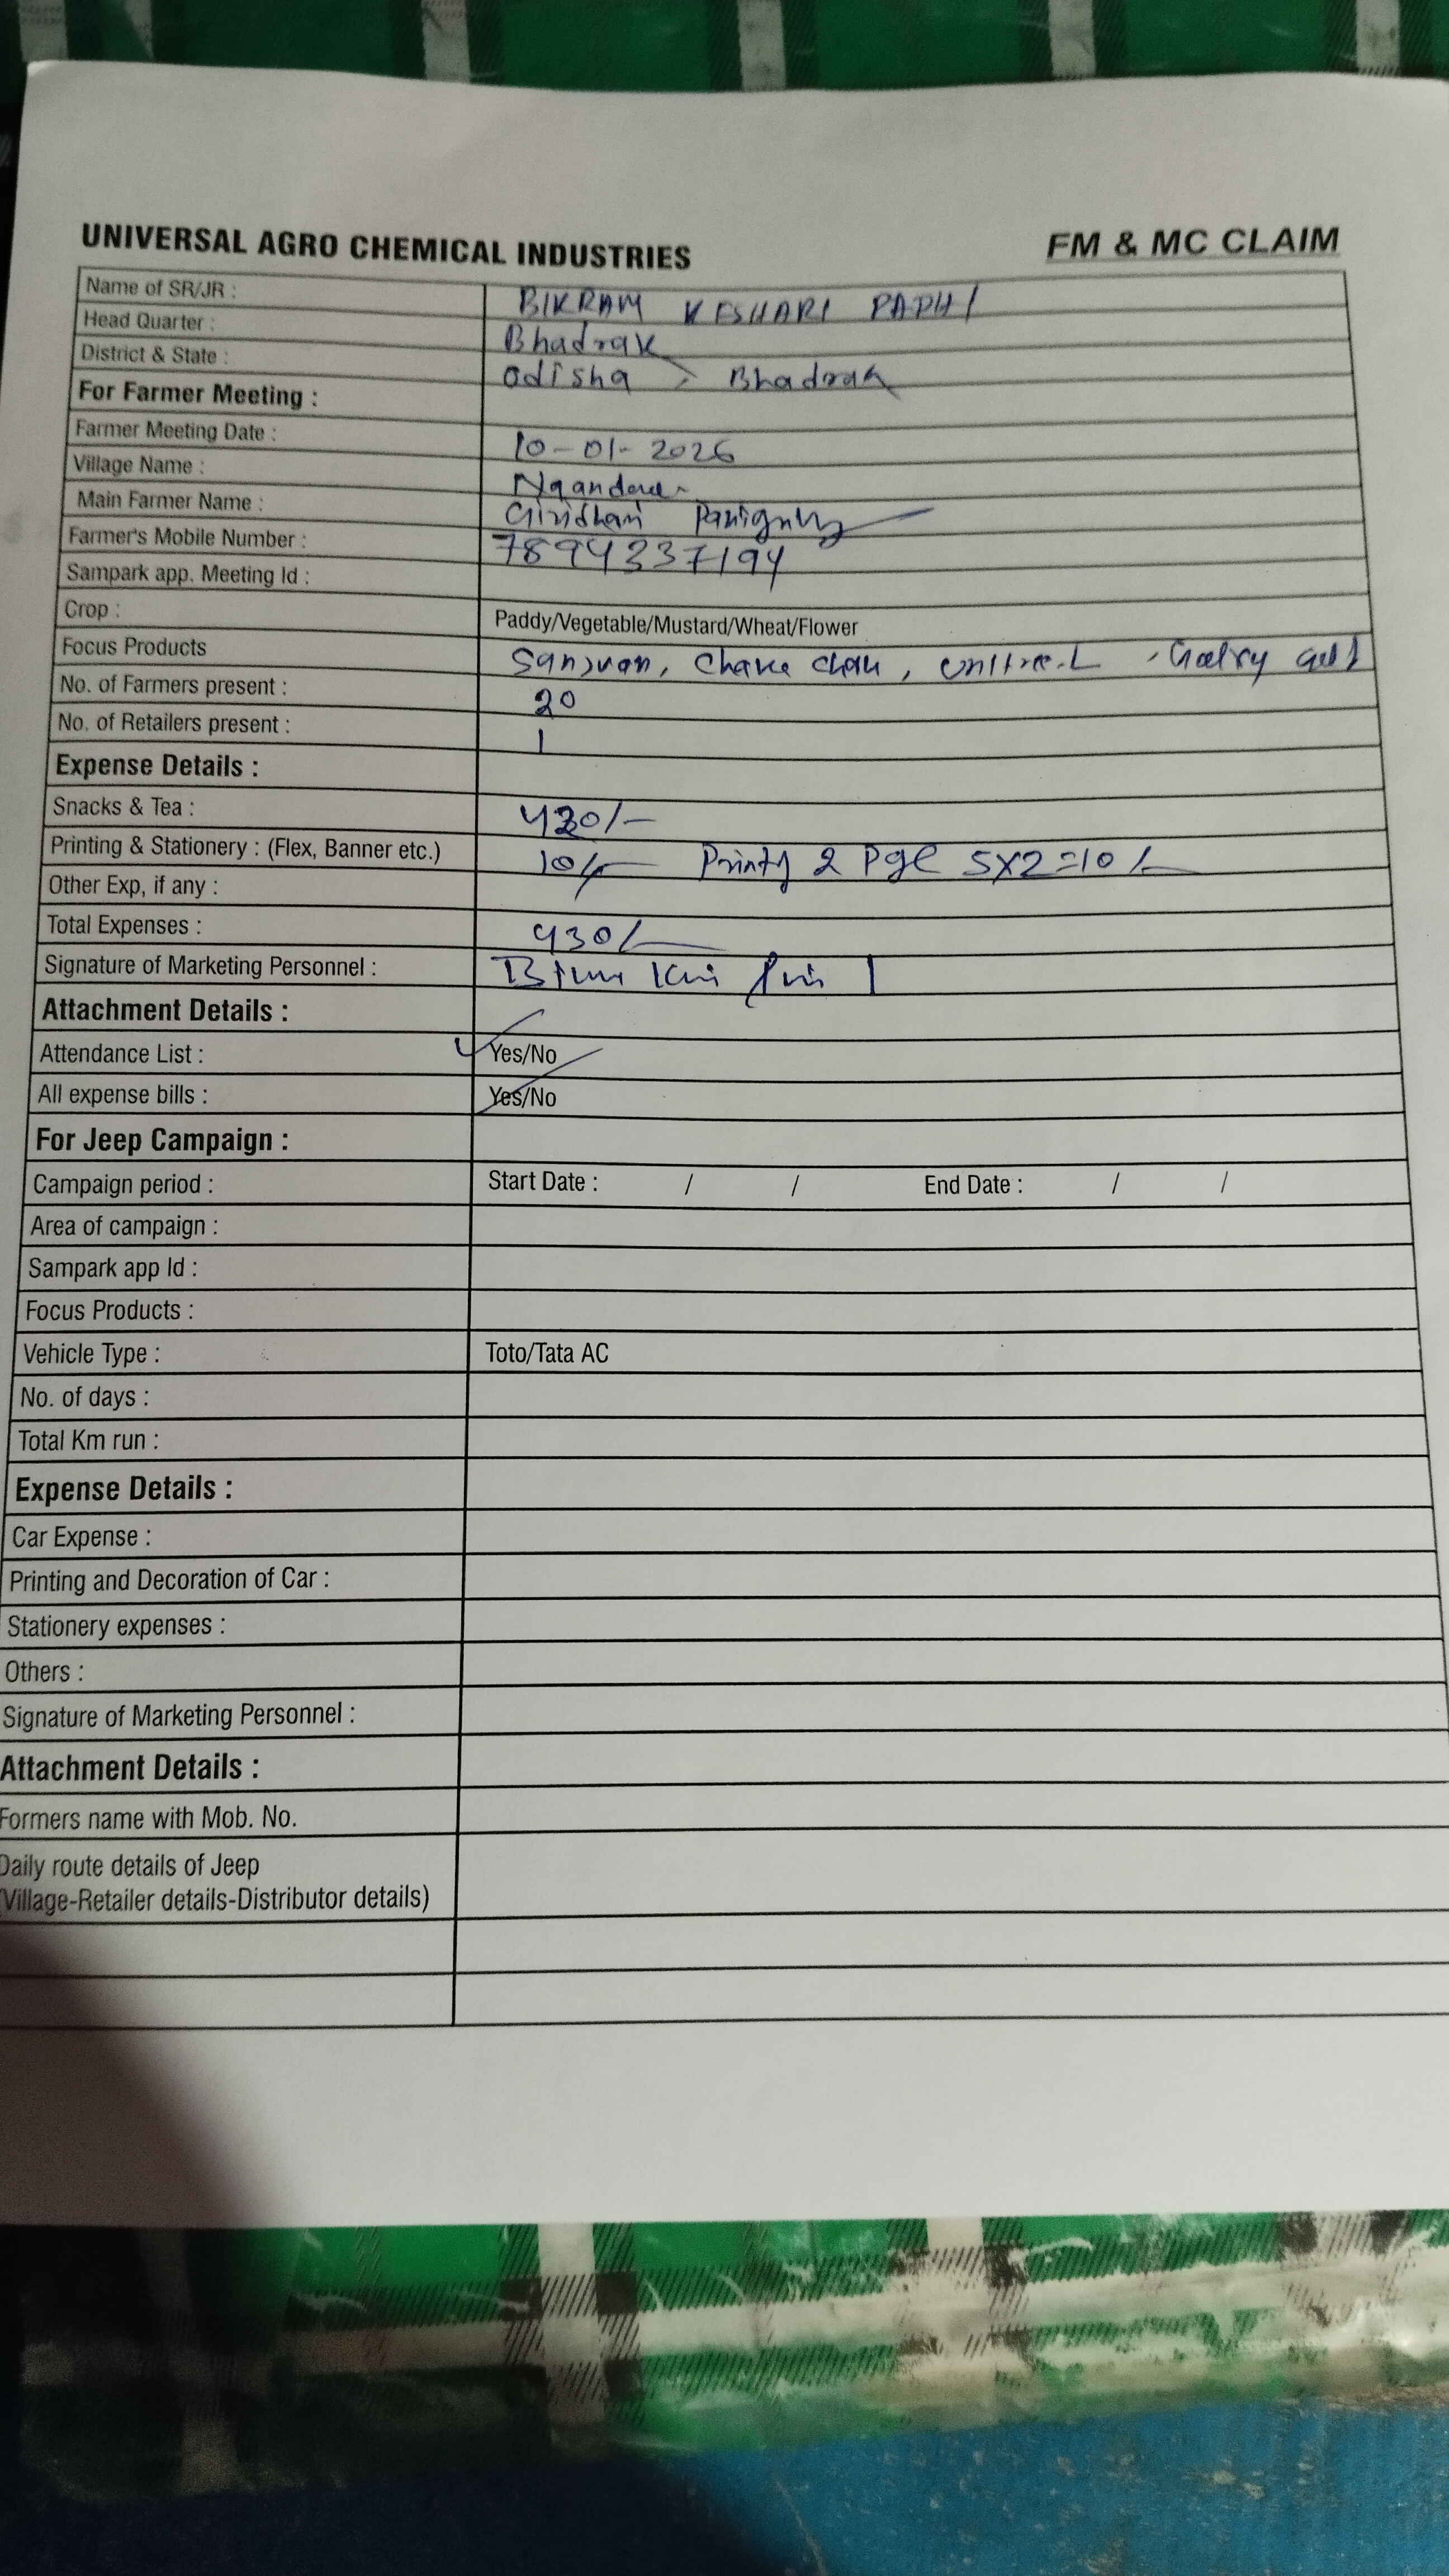 UNIVERSAL AGRO CHEMICAL INDUSTRIES FM & MC CLAIM
Name of SR/JR : BIKRAM KESHARI PADHI
Head Quarter : Bhadrak
District & State : odisha , Bhadrak
For Farmer Meeting :
Farmer Meeting Date : 10-01-2026
Village Name :
Main Farmer Name : Giridhari
Farmer's Mobile Number : 7894337194
Sampark app. Meeting Id :
Crop : Paddy/Vegetable/Mustard/Wheat/Flower
Focus Products
No. of Farmers present : 20
No. of Retailers present : 1
Expense Details :
Snacks & Tea :
Printing & Stationery : (Flex, Banner etc.) 10/- 2 Pge 5X2=10/-
Other Exp, if any :
Total Expenses : 430/-
Signature of Marketing Personnel :
Attachment Details :
Attendance List : Yes/No
All expense bills : Yes/No
For Jeep Campaign :
Campaign period : Start Date : / / End Date : / /
Area of campaign :
Sampark app Id :
Focus Products :
Vehicle Type : Toto/Tata AC
No. of days :
Total Km run :
Expense Details :
Car Expense :
Printing and Decoration of Car :
Stationery expenses :
Others :
Signature of Marketing Personnel :
Attachment Details :
Formers name with Mob. No.
Daily route details of Jeep
(Village-Retailer details-Distributor details)